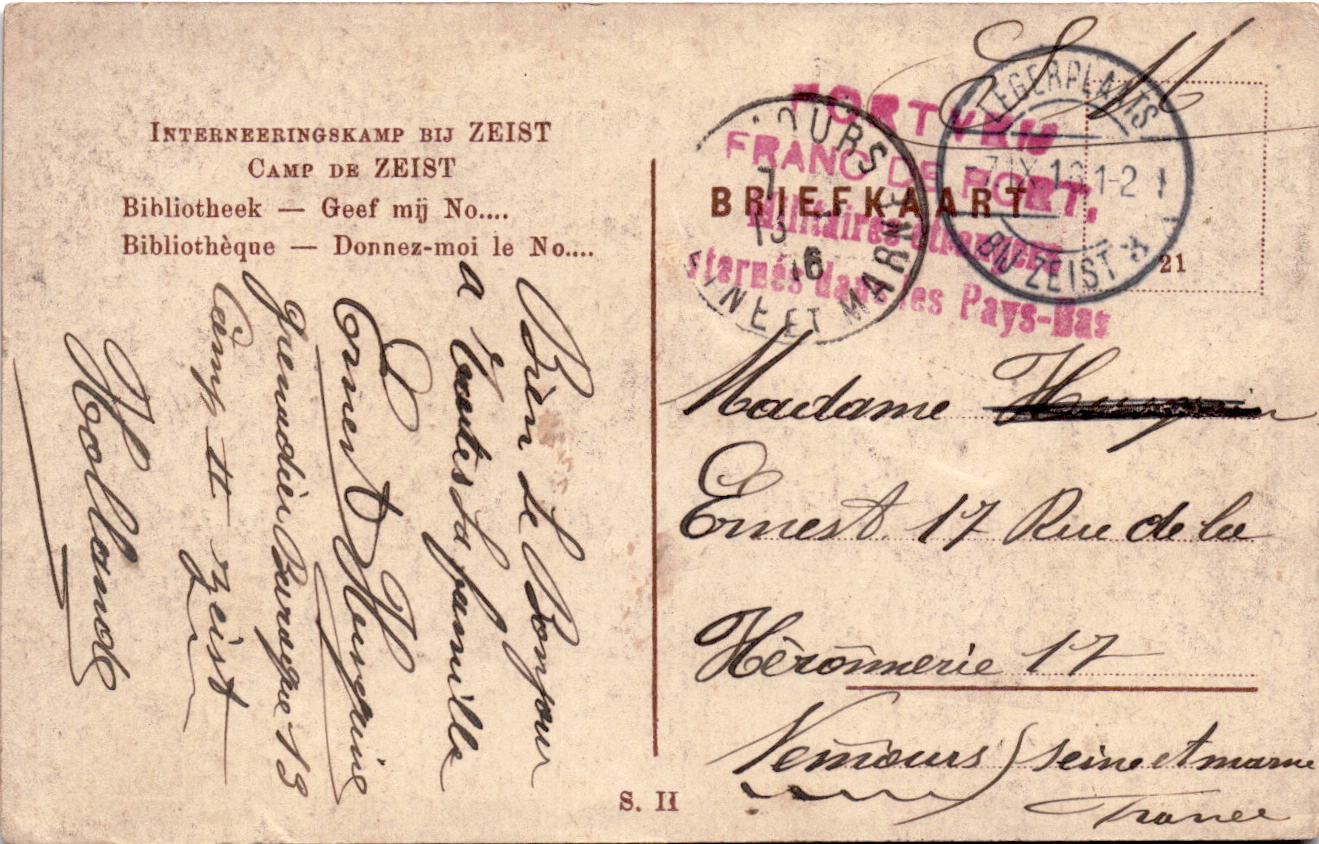 INTERNEERINGSKAMP BIJ ZEIST
CAMP DE ZEIST
Bibliotheek — Geef mij No....
Bibliothèque — Donnez-moi le No....
Bien Le Bonjour
a toutes ta famille
Ernest Hurguine
Grenadier Baraque 13
Camp II Zeist
Hollande
S. II
S M
PORTVRIJ
FRANC DE PORT.
Militaires étrangers
internés dans les Pays-Bas
BRIEFKAART
OURS
7
13
16
NE ET MARNE
LEGERPLAATS
7 IX 16 1-2
BIJ ZEIST
21
Madame
Ernest. 17 Rue de la
Héronnerie 17
Nemours Seine et marne
France